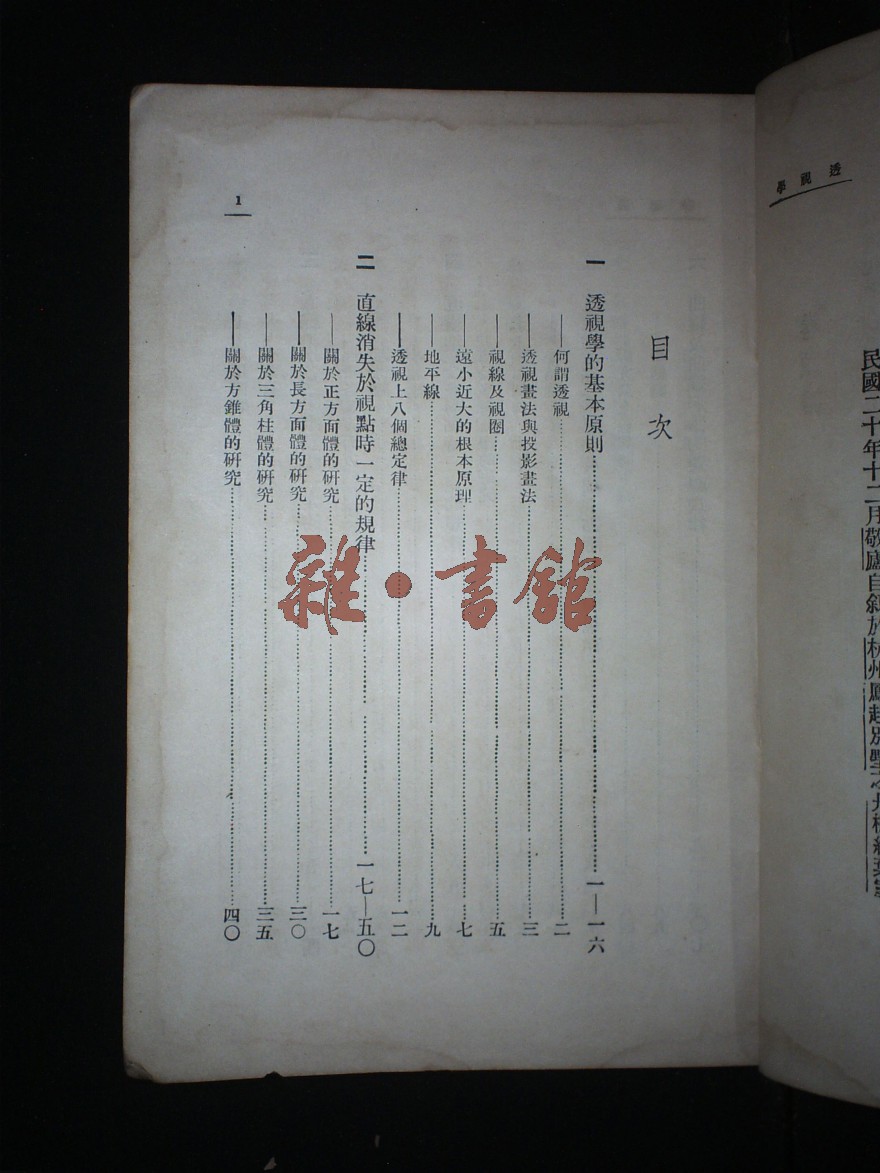 透視學
民國二十年十二月敬廬自敍於杭州鳳起別墅之
目次
一 透視學的基本原則……一—一六
——何謂透視……二
——透視畫法與投影畫法……三
——視線及視圈……五
——遠小近大的根本原理……七
——地平線……九
——透視上八個總定律……一二
二 直線消失於視點時一定的規律……一七—五〇
——關於正方面體的研究……一七
——關於長方面體的研究……三〇
——關於三角柱體的研究……三五
——關於方錐體的研究……四〇
1
雜·書館